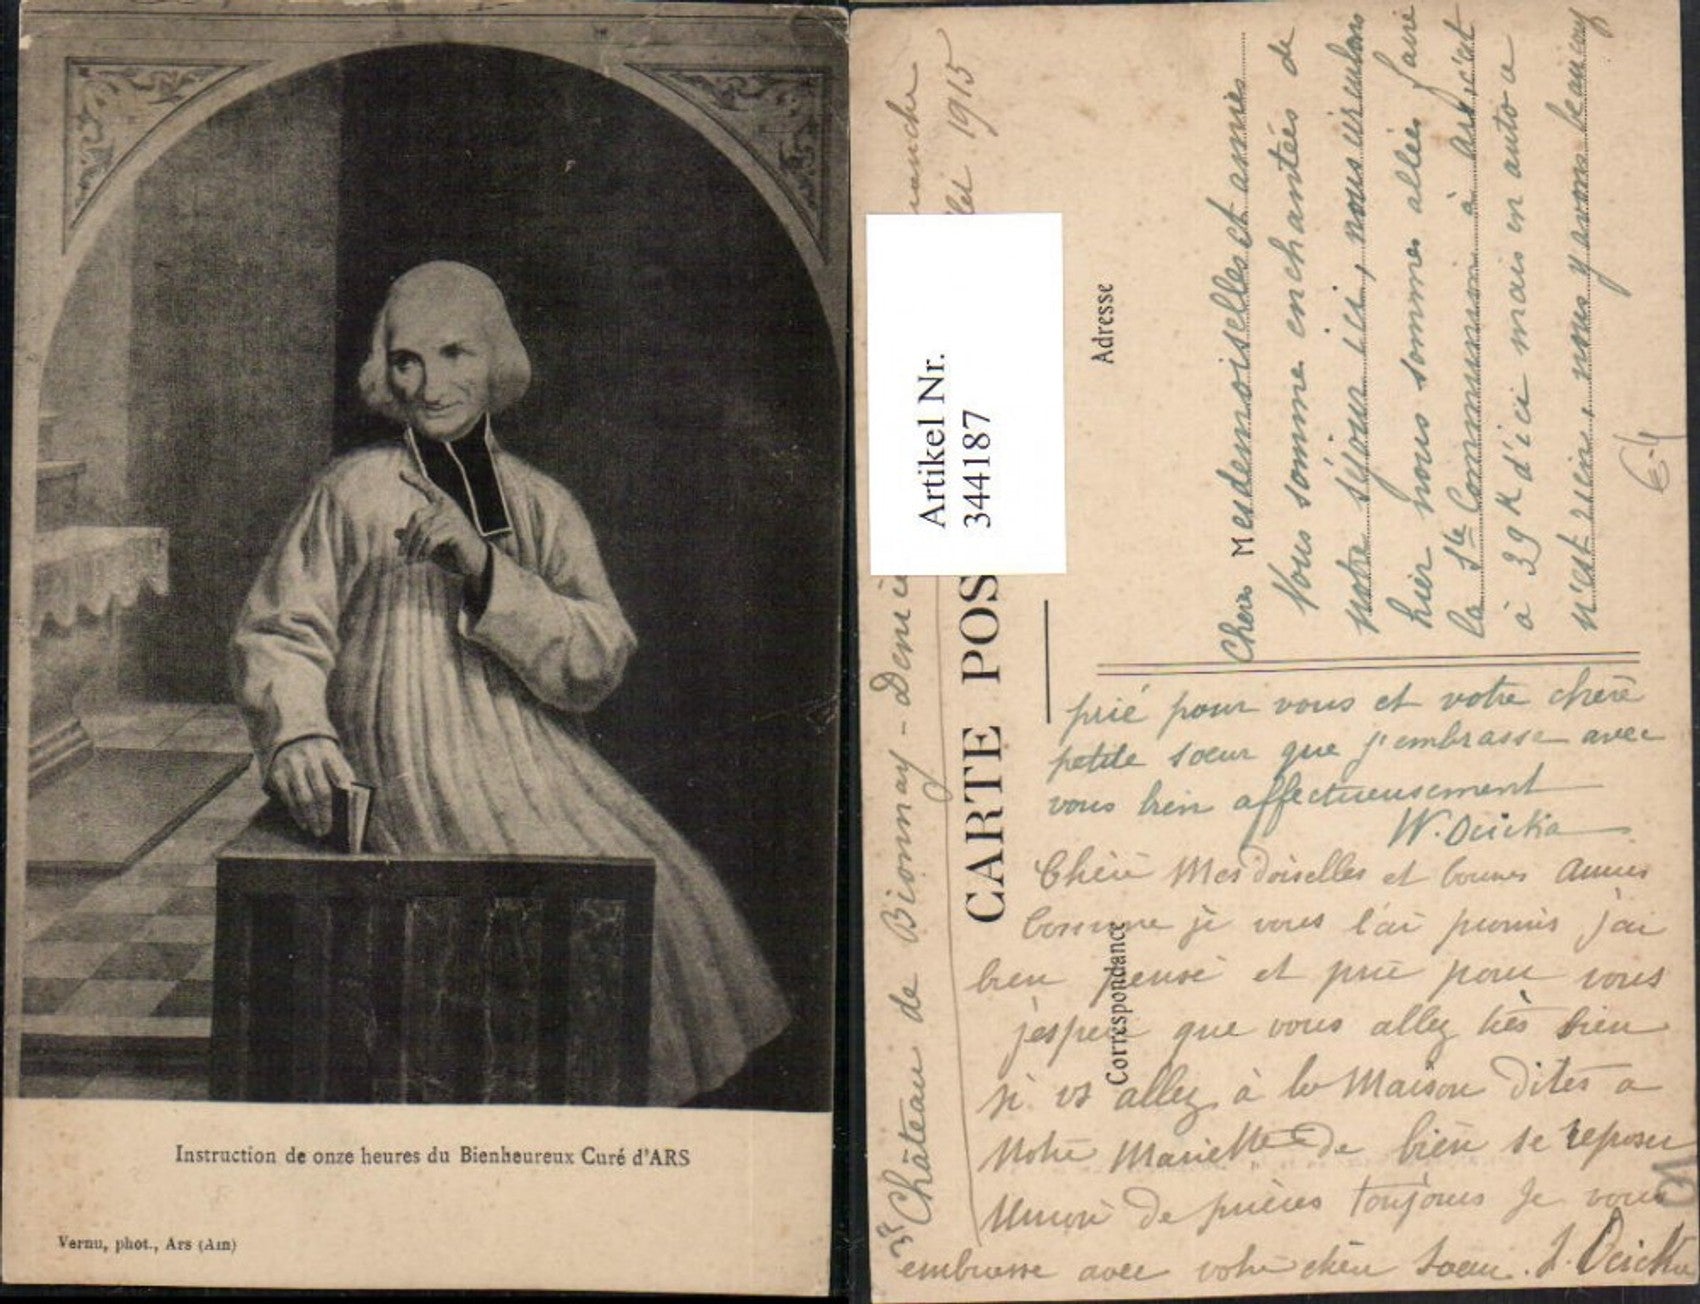 Instruction de onze heures du Bienheureux Curé d'ARS
Vernu, phot., Ars (Ain)
Artikel Nr.
344187
CARTE POS
Adresse
Correspondance
Château de Bionnay - Denicé
manche
1915
Cheres Mesdemoiselles et amies
Nous somme enchantées de
notre séjour ici, nous
hier nous sommes allées faire
la Ste Communion à ars, c'est
à 29 K d'ici mais en auto a
n'est rien, nous y avons beaucoup
prié pour vous et votre chère
petite soeur que j'embrasse avec
vous bien affectueusement
W.
Chère Mesdoiselles et bonnes Amies
Comme je vous l'ai promis j'ai
bien pensé et prié pour vous
j'espère que vous allez très bien
si vs allez à la Maison dites a
Notre Mariette de bien se reposer
de prières toujours Je vous
embrasse avec votre chère Soeur. J.